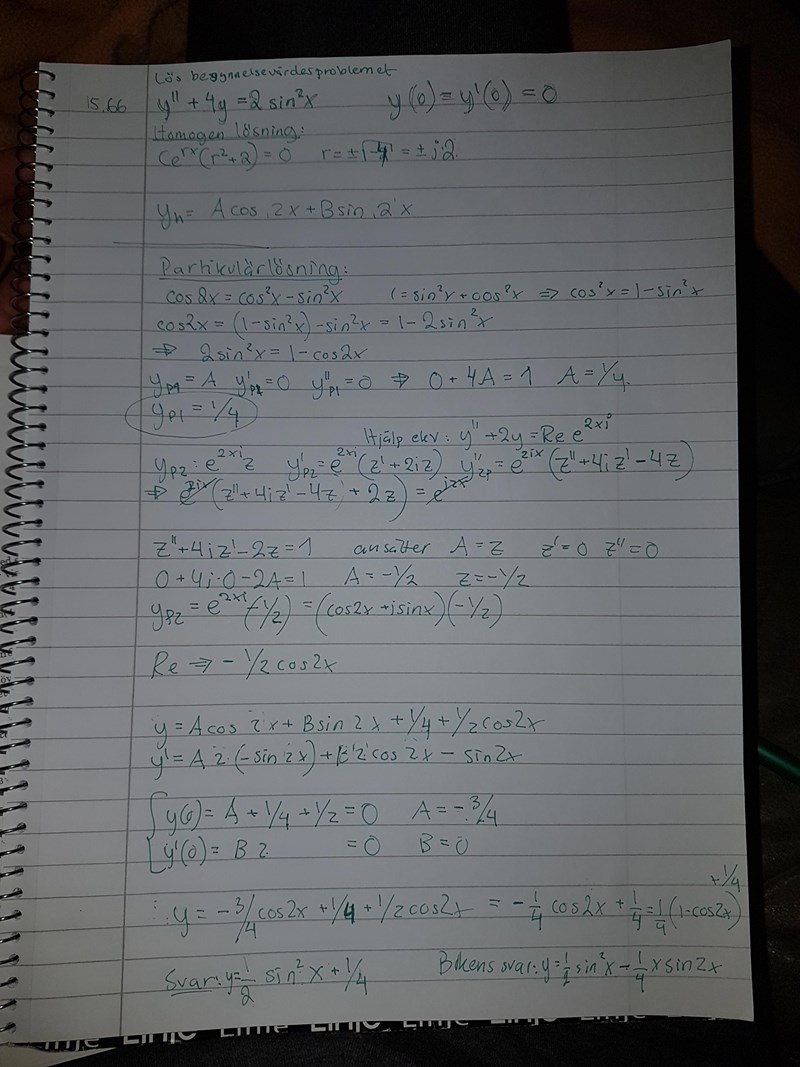 Lös begynnelsevärdesproblemet
15.66 y'' + 4y = 2 sin²x y(0) = y'(0) = 0
Homogen lösning:
Ce^rx (r²+2) = 0 r = ±√-4 = ± i·2.
yh = A cos 2x + B sin 2x
Partikulärlösning:
cos 2x = cos²x - sin²x 1 = sin²x + cos²x ⇒ cos²x = 1 - sin²x
cos2x = (1-sin²x) - sin²x = 1 - 2sin²x
⇒ 2sin²x = 1 - cos2x
yp1 = A y'p1 = 0 y''p1 = 0 ⇒ 0 + 4A = 1 A = 1/4.
yp1 = 1/4
Hjälp ekv: y'' + 2y = Re e^2xi
yp2 : e^2xi z y'p2 = e^2xi (z' + 2iz) y''2p = e^2ix (z'' + 4iz' - 4z)
⇒ e^2ix (z'' + 4iz' - 4z + 2z) = e^i2x
z'' + 4iz' - 2z = 1 ansätter A = z z' = 0 z'' = 0
0 + 4i·0 - 2A = 1 A = -1/2 z = -1/2
yp2 = e^2xi (-1/2) = (cos2x + isinx)(-1/2)
Re ⇒ - 1/2 cos2x
y = A cos 2x + B sin 2x + 1/4 + 1/2 cos2x
y' = A 2·(-sin 2x) + B·2 cos 2x - sin 2x
y(0) = A + 1/4 + 1/2 = 0 A = -3/4
y'(0) = B 2 = 0 B = 0
+1/4
∴ y = -3/4 cos2x + 1/4 + 1/2 cos2x = -1/4 cos2x + 1/4 = 1/4 (1-cos2x)
Svar: y = 1/2 sin²x + 1/4 Bokens svar: y = 1/2 sin²x - 1/4 x sin2x